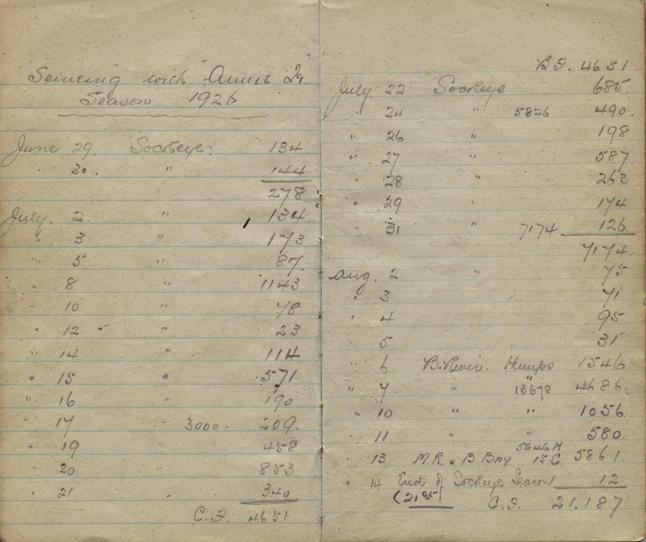 Seineing with "Annie 2n"
Season 1926
June 29 Sockeye. 134
" 30. " 144
278
July. 2. " 134
" 3 " 173
" 5 " 87
" 8 " 1143
" 10 " 78
" 12 " 23
" 14 " 114
" 15 " 571
" 16 " 190
" 17 " 3000. 209.
" 19 " 458
" 20 " 853
" 21 " 340
C.F. 4651
B.F. 4651
July 22 Sockeye 685.
" 24 " 5826 490.
" 26 " 198
" 27 " 587
" 28 " 263
" 29 " 174
" 31 " 7174 126
7174.
Aug. 2 " 75
" 3 " 71
" 4 95
" 5 31
" 6 B. River. Humps 1546
" 7 " " 4686.
" 10 " " 1056.
" 11 " 580.
5846 H
" 13 M.R. & B Bay 15 C 5861
" 14 End of Sockeye Season 12
C.F. 21.187